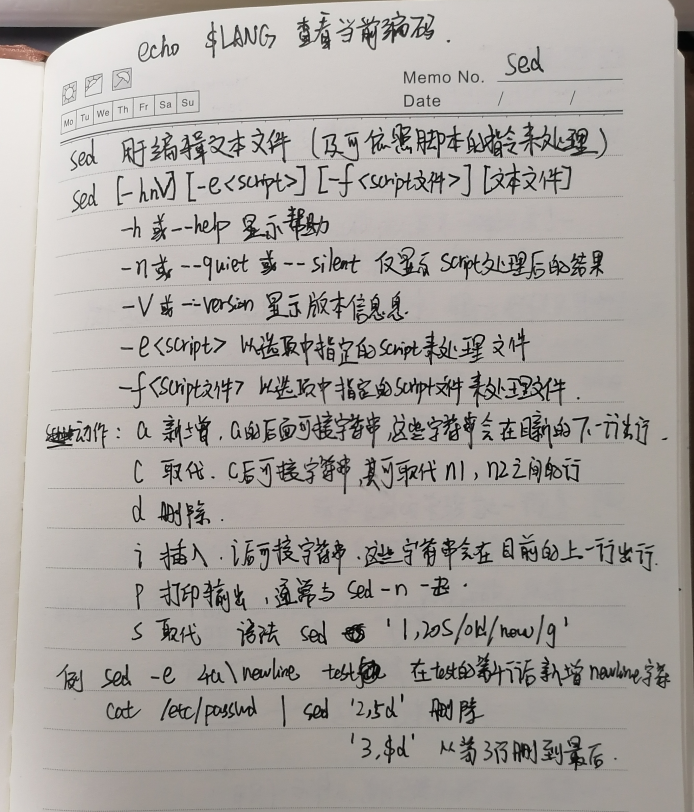 echo $LANG 查看当前编码.
Memo No. sed
Mo Tu We Th Fr Sa Su
Date / /
sed 用于编辑文本文件 (及可依照脚本的指令来处理)
sed [-hnV] [-e<script>] [-f<script文件>] [文本文件]
-h 或 --help 显示帮助
-n 或 --quiet 或 --silent 仅显示 Script处理后的结果
-V 或 --version 显示版本信息息.
-e<script> 以选取中指定的script来处理文件
-f<script文件> 以选取中指定的script文件来处理文件.
动作: a 新增, a的后面可接字符串, 这些字符串会在目前的下一行出行.
C 取代. C后可接字符串, 其可取代 n1, n2 之间的行
d 删除.
i 插入. i后可接字符串. 这些字符串会在目前的上一行出行.
P 打印输出, 通常与 sed -n 一起.
S 取代 语法 sed '1,20S/old/new/g'
例 sed -e 4a\newline test 在test的第4行后新增newline字符
cat /etc/passwd | sed '2,5d' 删除
'3,$d' 从第3行删到最后.